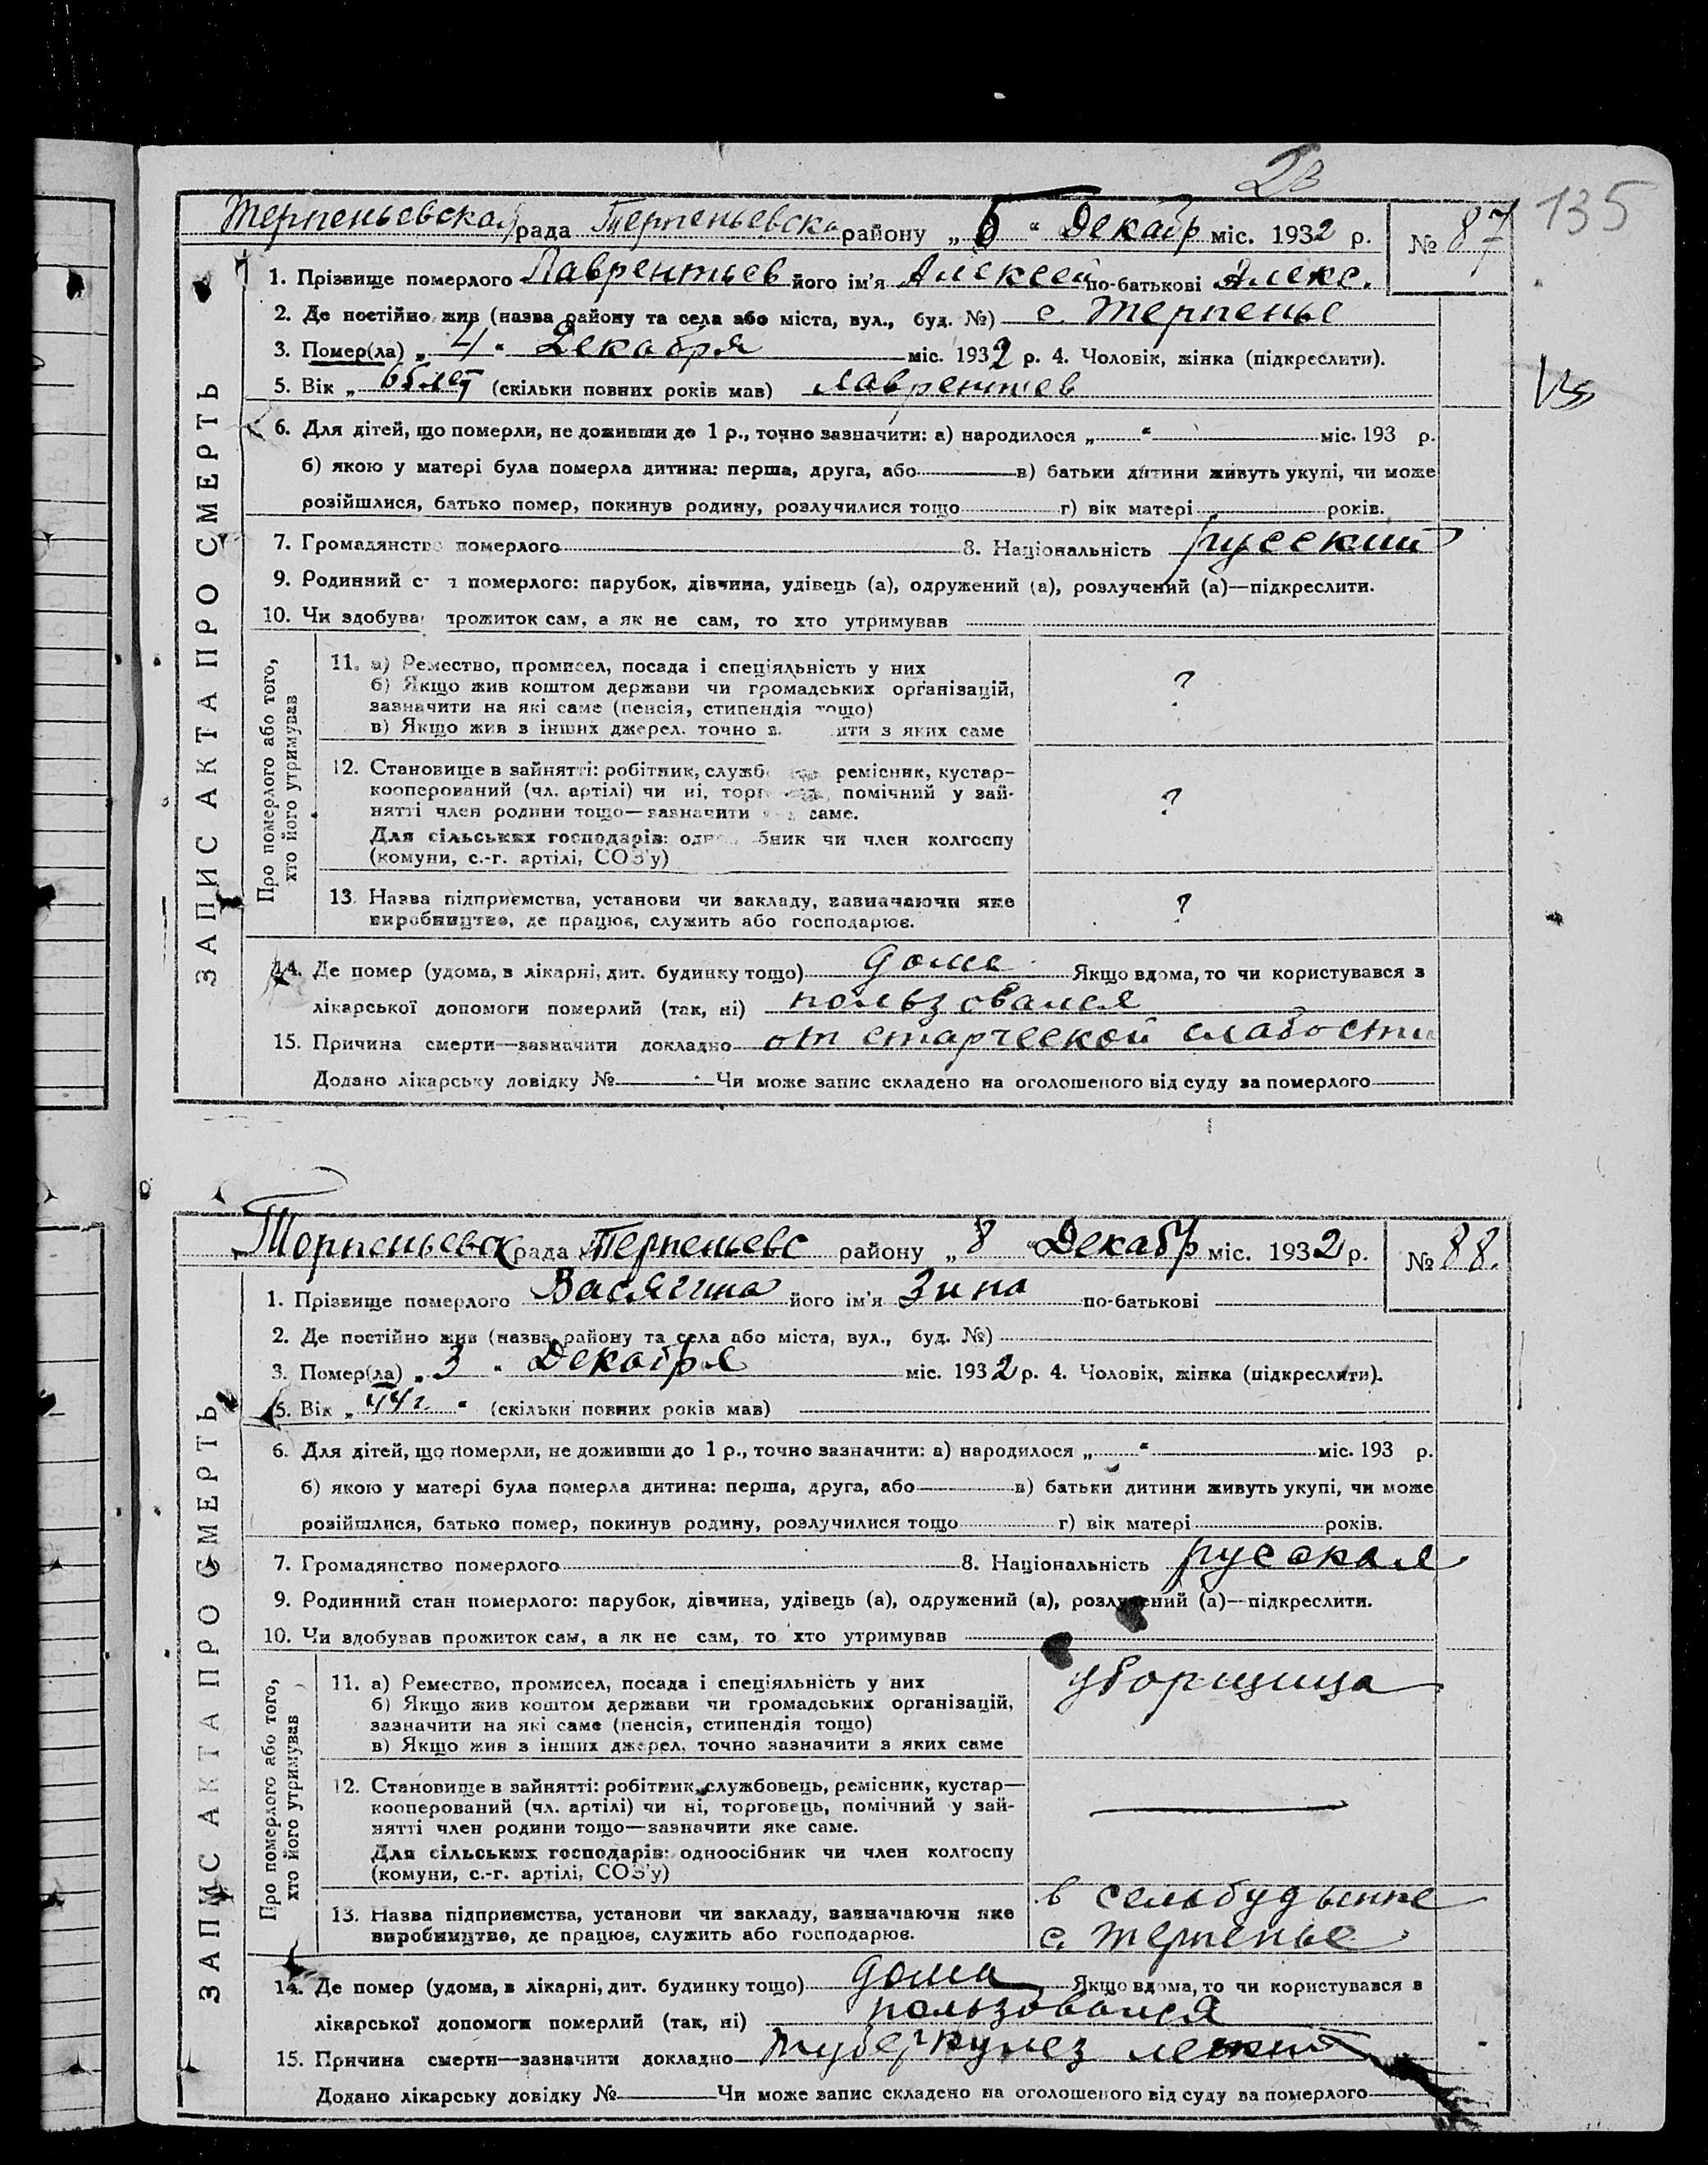 135
Терпеньевская рада Терпеньевска району „ 6 “ Декабр міс. 1932 р. № 87
1. Прізвище померлого Лаврентьев його ім'я Алексей по-батькові Алекс.
2. Де постійно жив (назва району та села або міста, вул., буд. №) с. Терпенье
3. Помер(ла) „ 4 “ Декабря міс. 1932 р. 4. Чоловік, жінка (підкреслити).
5. Вік „ 65 лет (скільки повних років мав) Лаврентьев
6. Для дітей, що померли, не доживши до 1 р., точно зазначити: а) народилося „ “ міс. 193 р.
б) якою у матері була померла дитина: перша, друга, або в) батьки дитини живуть укупі, чи може
розійшлися, батько помер, покинув родину, розлучилися тощо г) вік матері років.
7. Громадянство померлого 8. Національність русский
9. Родинний с н померлого: парубок, дівчина, удівець (а), одружений (а), розлучений (а)—підкреслити.
10. Чи здобува прожиток сам, а як не сам, то хто утримував
ЗАПИС АКТА ПРО СМЕРТЬ
Про померлого або того,
хто його утримував
11. а) Ремество, промисел, посада і спеціяльність у них
б) Якщо жив коштом держави чи громадських організацій,
зазначити на які саме (пенсія, стипендія тощо)
в) Якщо жив з інших джерел, точно з ити з яких саме
?
12. Становище в зайнятті: робітник, служб ремісник, кустар-
кооперований (чл. артілі) чи ні, торг помічний у зай-
нятті член родини тощо—зазначити саме.
Для сільських господарів: одно бник чи член колгоспу
(комуни, с.-г. артілі, СОЗ'у)
?
13. Назва підприємства, установи чи закладу, зазначаючи яке
виробництво, де працює, служить або господарює.
?
14. Де помер (удома, в лікарні, дит. будинку тощо) дома Якщо вдома, то чи користувався з
лікарської допомоги померлий (так, ні) пользовался
15. Причина смерти—зазначити докладно от старческой слабости
Додано лікарську довідку № Чи може запис складено на оголошеного від суду за померлого
Торпеньевск рада Терпеньевс району „ 8 “ Декабр міс. 1932 р. № 88.
1. Прізвище померлого Васягина його ім'я Зина по-батькові
2. Де постійно жив (назва району та села або міста, вул., буд. №)
3. Помер(ла) „ 3 “ Декабря міс. 1932 р. 4. Чоловік, жінка (підкреслити).
5. Вік „ 44 г. “ (скільки повних років мав)
6. Для дітей, що померли, не доживши до 1 р., точно зазначити: а) народилося „ “ міс. 193 р.
б) якою у матері була померла дитина: перша, друга, або в) батьки дитини живуть укупі, чи може
розійшлися, батько помер, покинув родину, розлучилися тощо г) вік матері років.
7. Громадянство померлого 8. Національність русская
9. Родинний стан померлого: парубок, дівчина, удівець (а), одружений (а), розлучений (а)—підкреслити.
10. Чи здобував прожиток сам, а як не сам, то хто утримував
ЗАПИС АКТА ПРО СМЕРТЬ
Про померлого або того,
хто його утримував
11. а) Ремество, промисел, посада і спеціяльність у них
б) Якщо жив коштом держави чи громадських організацій,
зазначити на які саме (пенсія, стипендія тощо)
в) Якщо жив з інших джерел, точно зазначити з яких саме
уборщица
12. Становище в зайнятті: робітник, службовець, ремісник, кустар—
кооперований (чл. артілі) чи ні, торговець, помічний у зай-
нятті член родини тощо—зазначити яке саме.
Для сільських господарів: одноосібник чи член колгоспу
(комуни, с.-г. артілі, СОЗ'у)
13. Назва підприємства, установи чи закладу, зазначаючи яке
виробництво, де працює, служить або господарює.
в сельбудынке
с. Терпенье
14. Де помер (удома, в лікарні, дит. будинку тощо) дома Якщо вдома, то чи користувався з
лікарської допомоги померлий (так, ні) пользовался
15. Причина смерти—зазначити докладно туберкулез легких
Додано лікарську довідку № Чи може запис складено на оголошеного від суду за померлого